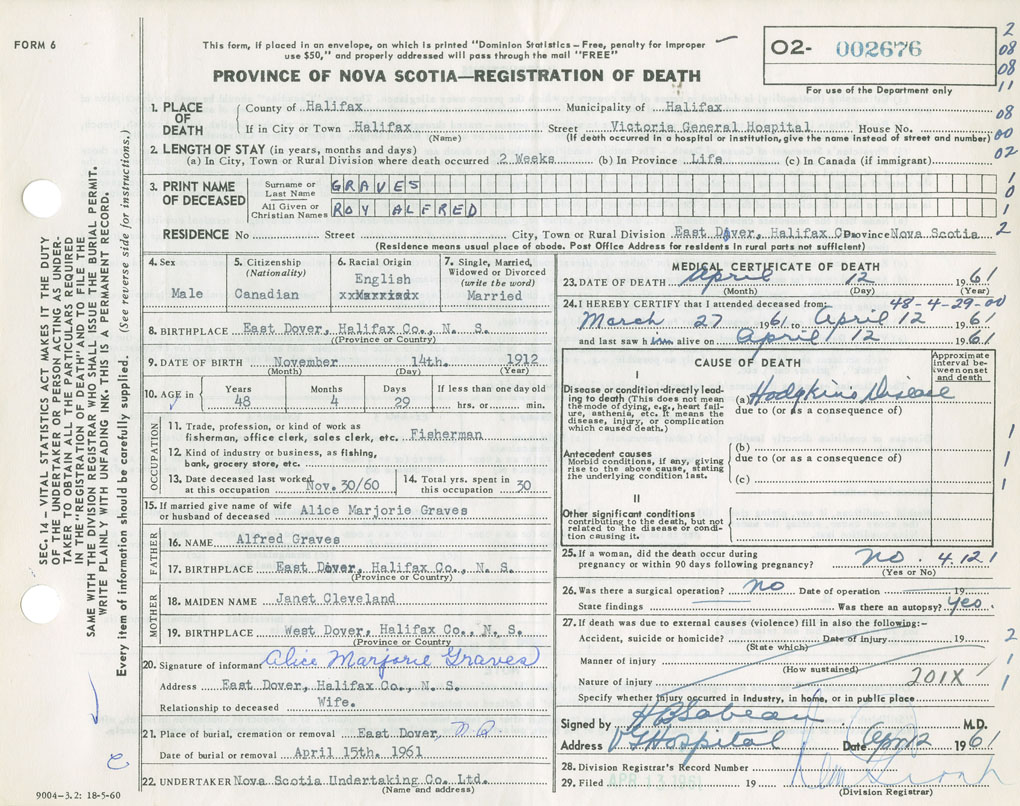 FORM 6
This form, if placed in an envelope, on which is printed "Dominion Statistics – Free, penalty for improper
use $50," and properly addressed will pass through the mail "FREE"
PROVINCE OF NOVA SCOTIA—REGISTRATION OF DEATH
02- 002676
For use of the Department only
2
08
08
11
08
00
02
1
0
1
2
1
1
1
2
1
1
SEC. 14 – VITAL STATISTICS ACT MAKES IT THE DUTY
OF THE UNDERTAKER OR PERSON ACTING AS UNDER-
TAKER TO OBTAIN ALL THE PARTICULARS REQUIRED
IN THE "REGISTRATION OF DEATH" AND TO FILE THE
SAME WITH THE DIVISION REGISTRAR WHO SHALL ISSUE THE BURIAL PERMIT.
WRITE PLAINLY WITH UNFADING INK. THIS IS A PERMANENT RECORD.
Every item of information should be carefully supplied. (See reverse side for instructions.)
1. PLACE OF DEATH
County of Halifax Municipality of Halifax
If in City or Town Halifax Street Victoria General Hospital House No.
(Name) (If death occurred in a hospital or institution, give the name instead of street and number)
2. LENGTH OF STAY (in years, months and days)
(a) In City, Town or Rural Division where death occurred 2 Weeks (b) In Province Life (c) In Canada (if immigrant)
3. PRINT NAME OF DECEASED
Surname or Last Name GRAVES
All Given or Christian Names ROY ALFRED
RESIDENCE No Street City, Town or Rural Division East Dover, Halifax Co. Province Nova Scotia
(Residence means usual place of abode. Post Office Address for residents in rural parts not sufficient)
4. Sex
Male
5. Citizenship
(Nationality)
Canadian
6. Racial Origin
English
xxMarriedx
7. Single, Married,
Widowed or Divorced
(write the word)
Married
8. BIRTHPLACE East Dover, Halifax Co., N. S.
(Province or Country)
9. DATE OF BIRTH November 14th. 1912
(Month) (Day) (Year)
10. AGE in
Years Months Days If less than one day old
48 4 29 hrs. or min.
OCCUPATION
11. Trade, profession, or kind of work as
fisherman, office clerk, sales clerk, etc. Fisherman
12. Kind of industry or business, as fishing,
bank, grocery store, etc.
13. Date deceased last worked
at this occupation Nov. 30/60
14. Total yrs. spent in
this occupation 30
15. If married give name of wife
or husband of deceased Alice Marjorie Graves
FATHER
16. NAME Alfred Graves
17. BIRTHPLACE East Dover, Halifax Co., N. S.
(Province or Country)
MOTHER
18. MAIDEN NAME Janet Cleveland
19. BIRTHPLACE West Dover, Halifax Co., N. S.
(Province or Country)
20. Signature of informant Alice Marjorie Graves
Address East Dover, Halifax Co., N. S.
Relationship to deceased Wife.
21. Place of burial, cremation or removal East Dover,
Date of burial or removal April 15th. 1961
22. UNDERTAKER Nova Scotia Undertaking Co. Ltd.
(Name and address)
9004-3.2: 18-5-60
MEDICAL CERTIFICATE OF DEATH
23. DATE OF DEATH April 12 1961
(Month) (Day) (Year)
24. I HEREBY CERTIFY that I attended deceased from:
48-4-29-00
March 27 1961 to April 12 1961
and last saw him alive on April 12 1961
CAUSE OF DEATH
Approximate
interval be-
tween onset
and death
I
Disease or condition directly lead-
ing to death (This does not mean
the mode of dying, e.g., heart fail-
ure, asthenia, etc. It means the
disease, injury, or complication
which caused death.)
(a) Hodgkins Disease
due to (or as a consequence of)
Antecedent causes
Morbid conditions, if any, giving
rise to the above cause, stating
the underlying condition last.
(b)
due to (or as a consequence of)
(c)
II
Other significant conditions
contributing to the death, but not
related to the disease or condi-
tion causing it.
25. If a woman, did the death occur during
pregnancy or within 90 days following pregnancy? no. 4.121
(Yes or No)
26. Was there a surgical operation? no Date of operation 19
State findings Was there an autopsy? yes
27. If death was due to external causes (violence) fill in also the following:-
Accident, suicide or homicide? Date of injury 19
(State which)
Manner of injury
(How sustained)
Nature of injury 201X
Specify whether injury occurred in industry, in home, or in public place
Signed by H B Sabean M.D.
Address V G Hospital Date Apr 12 1961
28. Division Registrar's Record Number
29. Filed APR 13 1961 19
(Division Registrar)